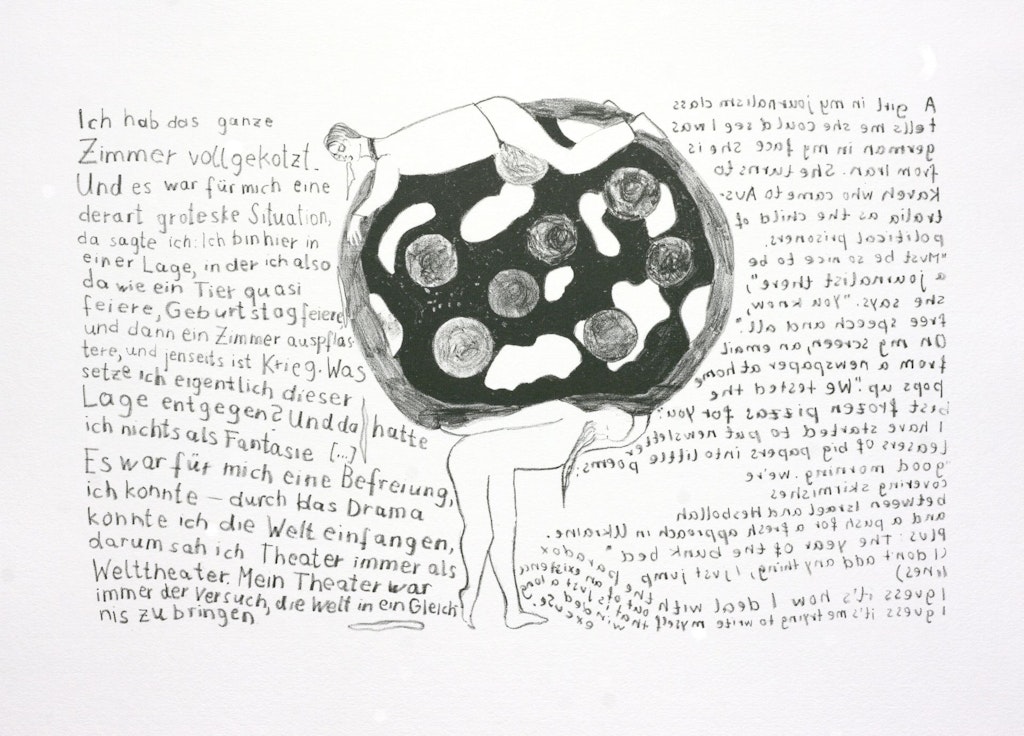 Ich hab das ganze
Zimmer vollgekotzt.
Und es war für mich eine
derart groteske Situation,
da sagte ich: Ich bin hier in
einer Lage, in der ich also
da wie ein Tier quasi
feiere, Geburtstag feiere
und dann ein Zimmer auspflas
tere, und jenseits ist Krieg. Was
setze ich eigentlich dieser
Lage entgegen? Und da hatte
ich nichts als Fantasie [...]
Es war für mich eine Befreiung,
ich konnte – durch das Drama
konnte ich die Welt einfangen,
darum sah ich Theater immer als
Welttheater. Mein Theater war
immer der Versuch, die Welt in ein Gleich
nis zu bringen
A girl in my journalism class
tells me she could see I was
german in my face she is
from Iran. She turns to
Kaveh who came to Aus-
tralia as the child of
political prisoners.
"Must be so nice to be
a journalist there",
she says. "You know,
free speech and all."
On my screen, an email
from a newspaper at home
pops up: "We tested the
best frozen pizzas for you?"
I have started to put newsletter
teasers of big papers into little poems:
"good morning. we're
covering skirmishes
between Israel and Hesbollah
and a push for a fresh approach in Ukraine.
Plus: The year of the bunk bed"
(I don't add anything, I just jump
lines)
I guess it's how I deal with the paradox
of an existence
I guess it's me trying to write myself
that is just a long
out of
winded
excuse.